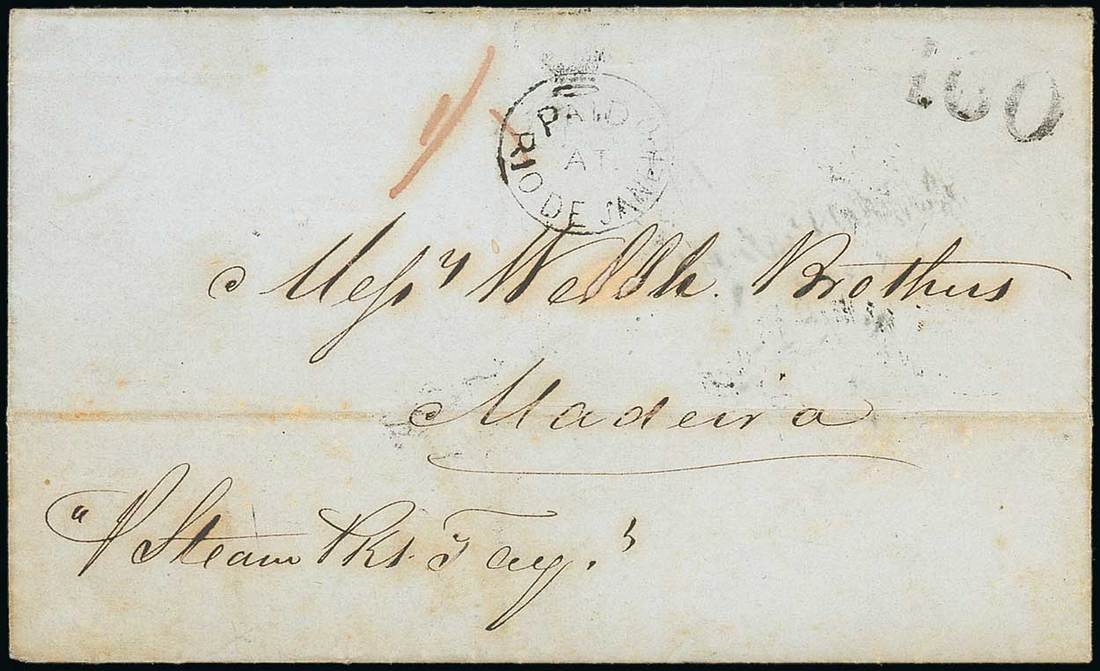 100
1/
PAID
AT
RIO DE JANEIRO
Messrs Welsh Brothers
Madeira
"P Steam Pkt. Tay."